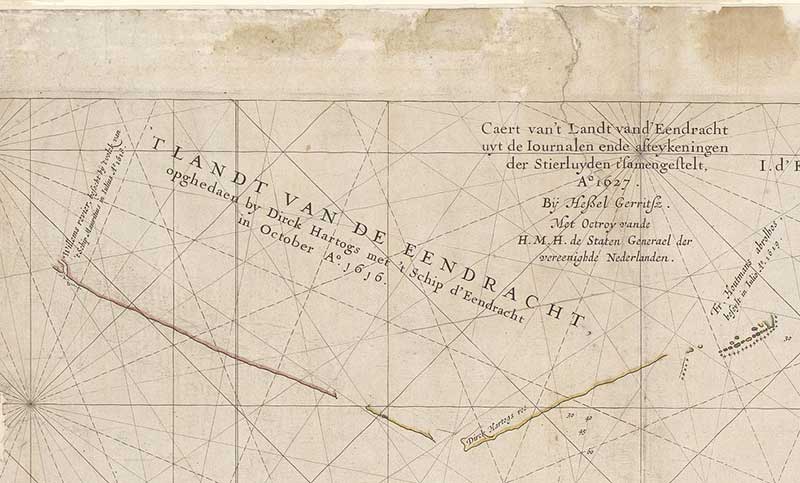 Caert van't Landt vand'Eendracht
uyt de Iournalen ende afteykeningen
der Stierluyden t'samengestelt,
Aº 1627.
Bij Heßel Gerritsz.
Met Octroy vande
H.M.H. de Staten Generael der
vereenighde Nederlanden.
I.d'E
T LANDT VAN DE EENDRACHT,
opghedaen by Dirck Hartogs met 't Schip d'Eendracht
in October Aº. 1616.
Willems revier, besocht by 't volck van
't Schip Mauritius in Iulius Aº. 1618.
Fr. Houtmans abrolhos.
in Iulio Aº. 1619.
30
Dirck Hartogs ree
30
40
45
60